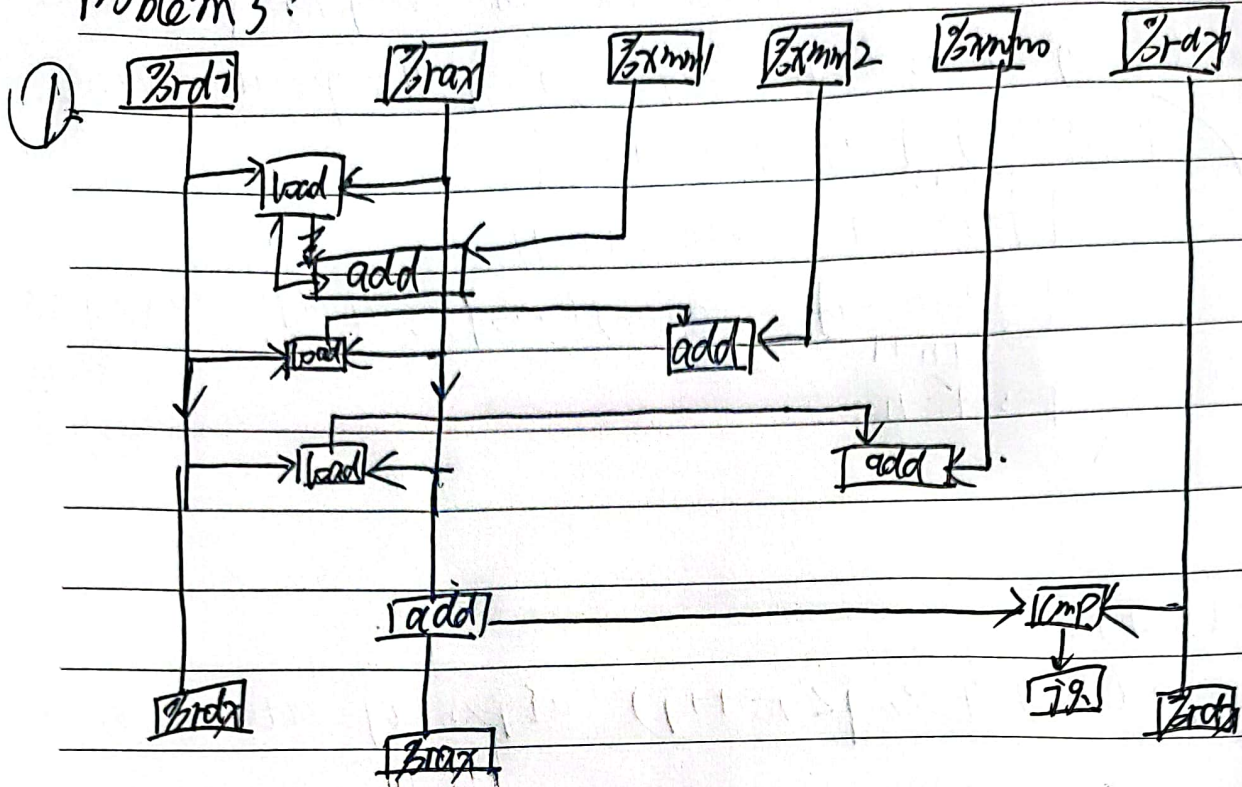 Problem 3:
①
%rdi %rax %xmm1 %xmm2 %xmm0 %rdx
load
add
load add
load add
add cmp
jg
%rdx %rdx
%rax